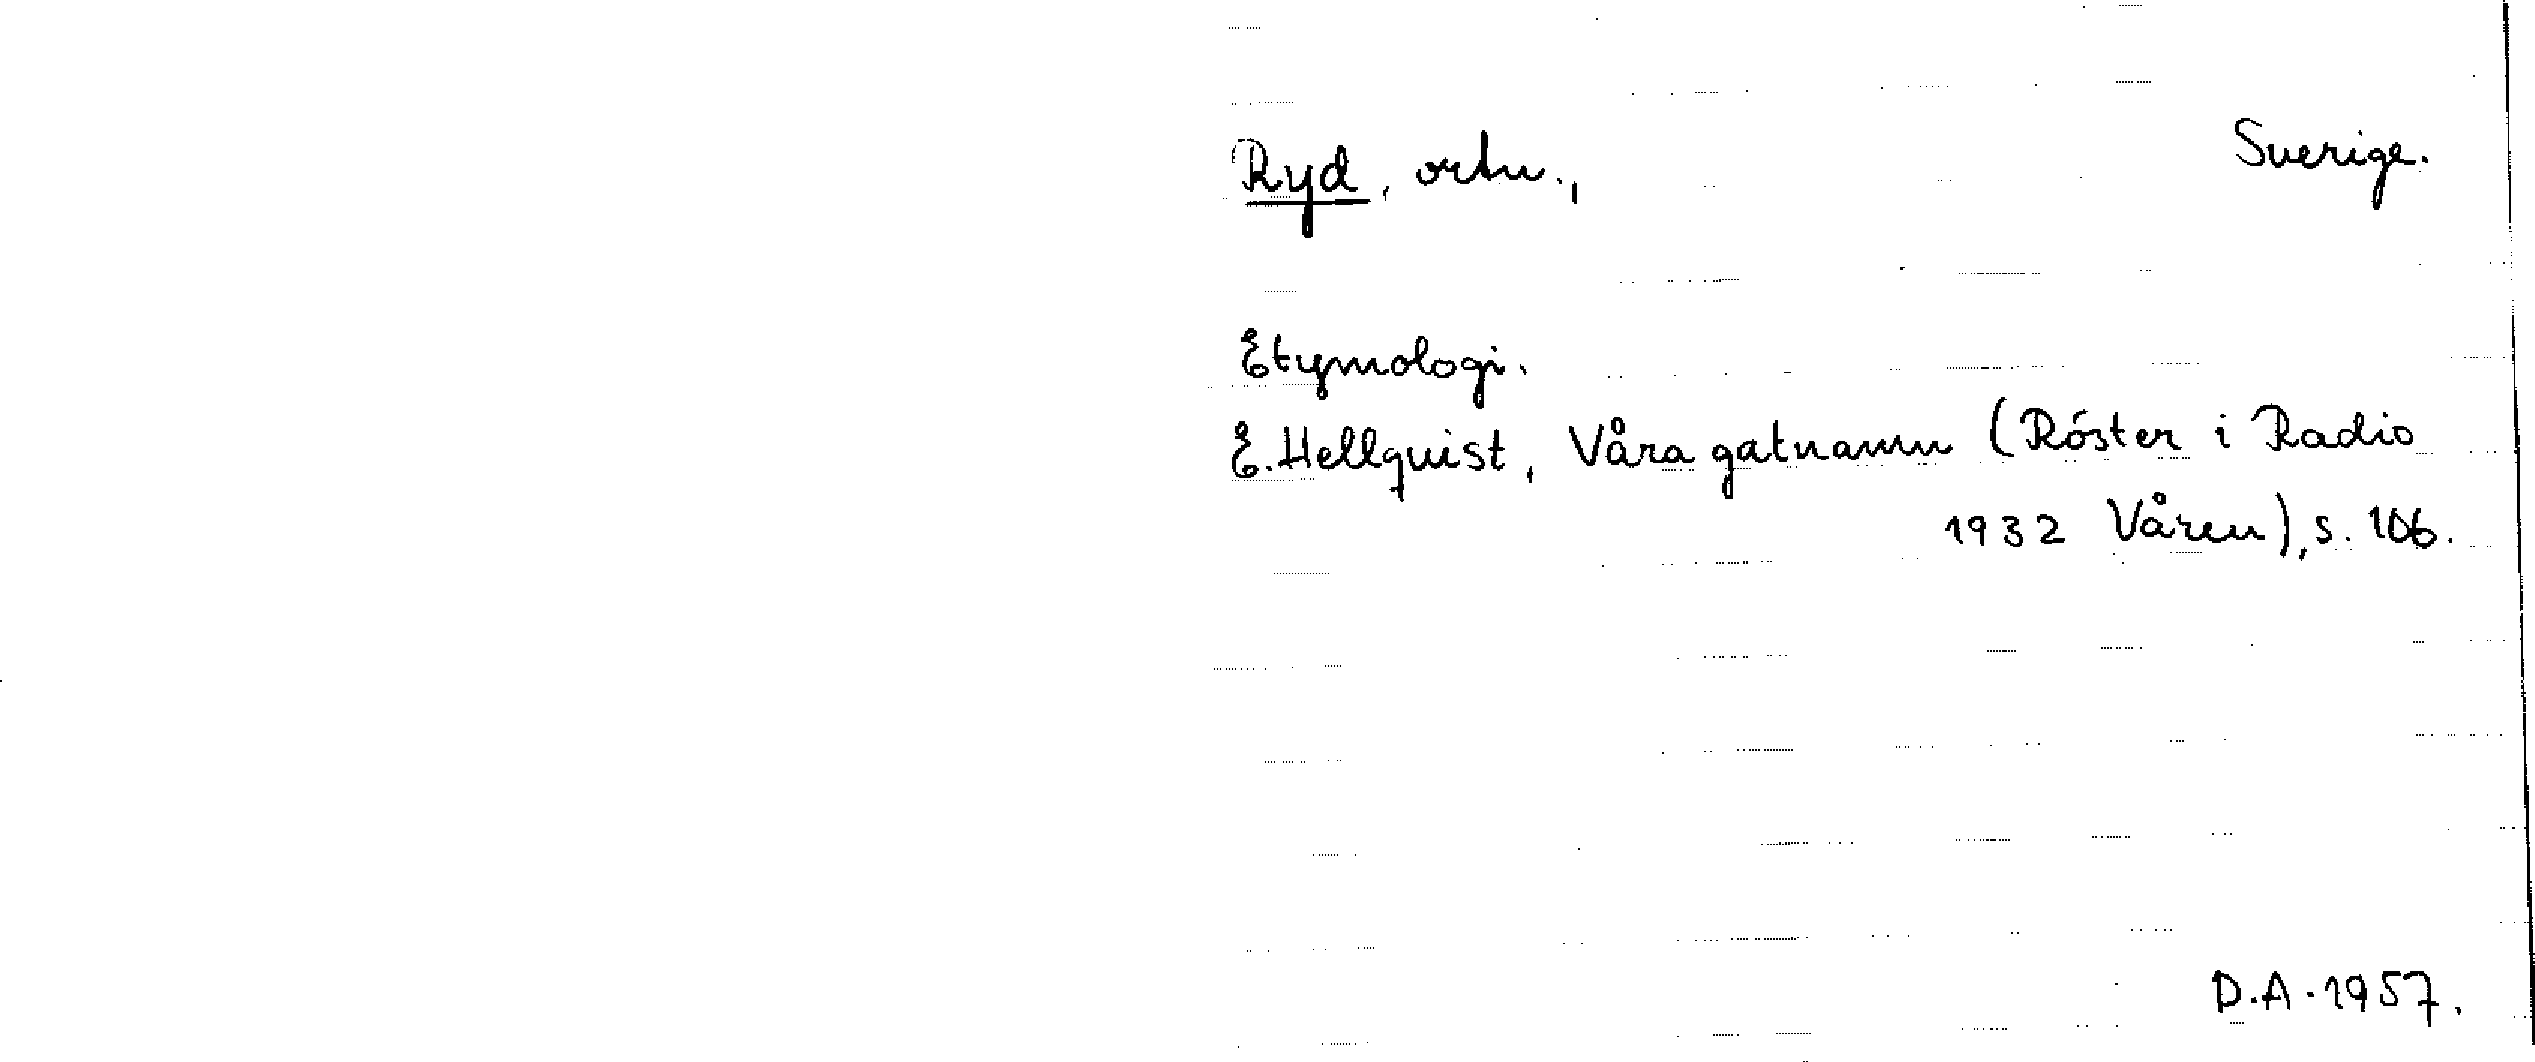 Ryd, ortn., Sverige.
Etymologi.
E. Hellquist, Våra gatnamn (Röster i Radio
1932 Våren), s. 106.
D.A. 1957.